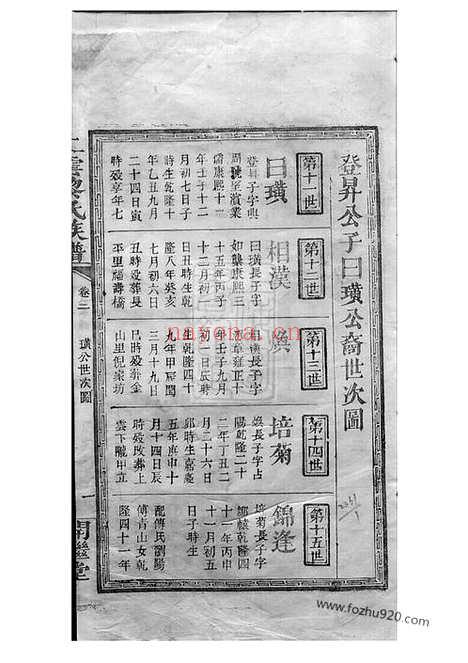 登昇公子曰璜公裔世次圖
第十一世
曰璜
登昇子字興
周號至濱業
儒康熙十一
年壬子十二
月初七日子
時生乾隆十
年乙丑九月
二十四日寅
時歿享年七
第十二世
相漢
曰璜長子字
如龔康熙三
十五年丙子
十二月初一
日丑時生乾
隆八年癸亥
七月初六日
丑時歿葬長
平里福壽橋
第十三世
相漢長子字
章雍正十
年壬子九月
初一日辰時
生乾隆四十
九年甲辰閏
三月十九日
巳時歿葬金
山里倪家坊
第十四世
培菊
長子字占
陽乾隆二十
二年丁丑二
月二十六日
卯時生嘉慶
五年庚申十
月十四日辰
時歿葬上
雲下隴甲立
第十五世
錦逢
培菊長子字
乾隆四
十一年丙申
十一月初五
日子時生
配傅氏瀏陽
傅青山女乾
隆四十一年
氏族譜
卷二
璜公世次圖
一
開繼堂
nayona.cn
www.fozhu920.com